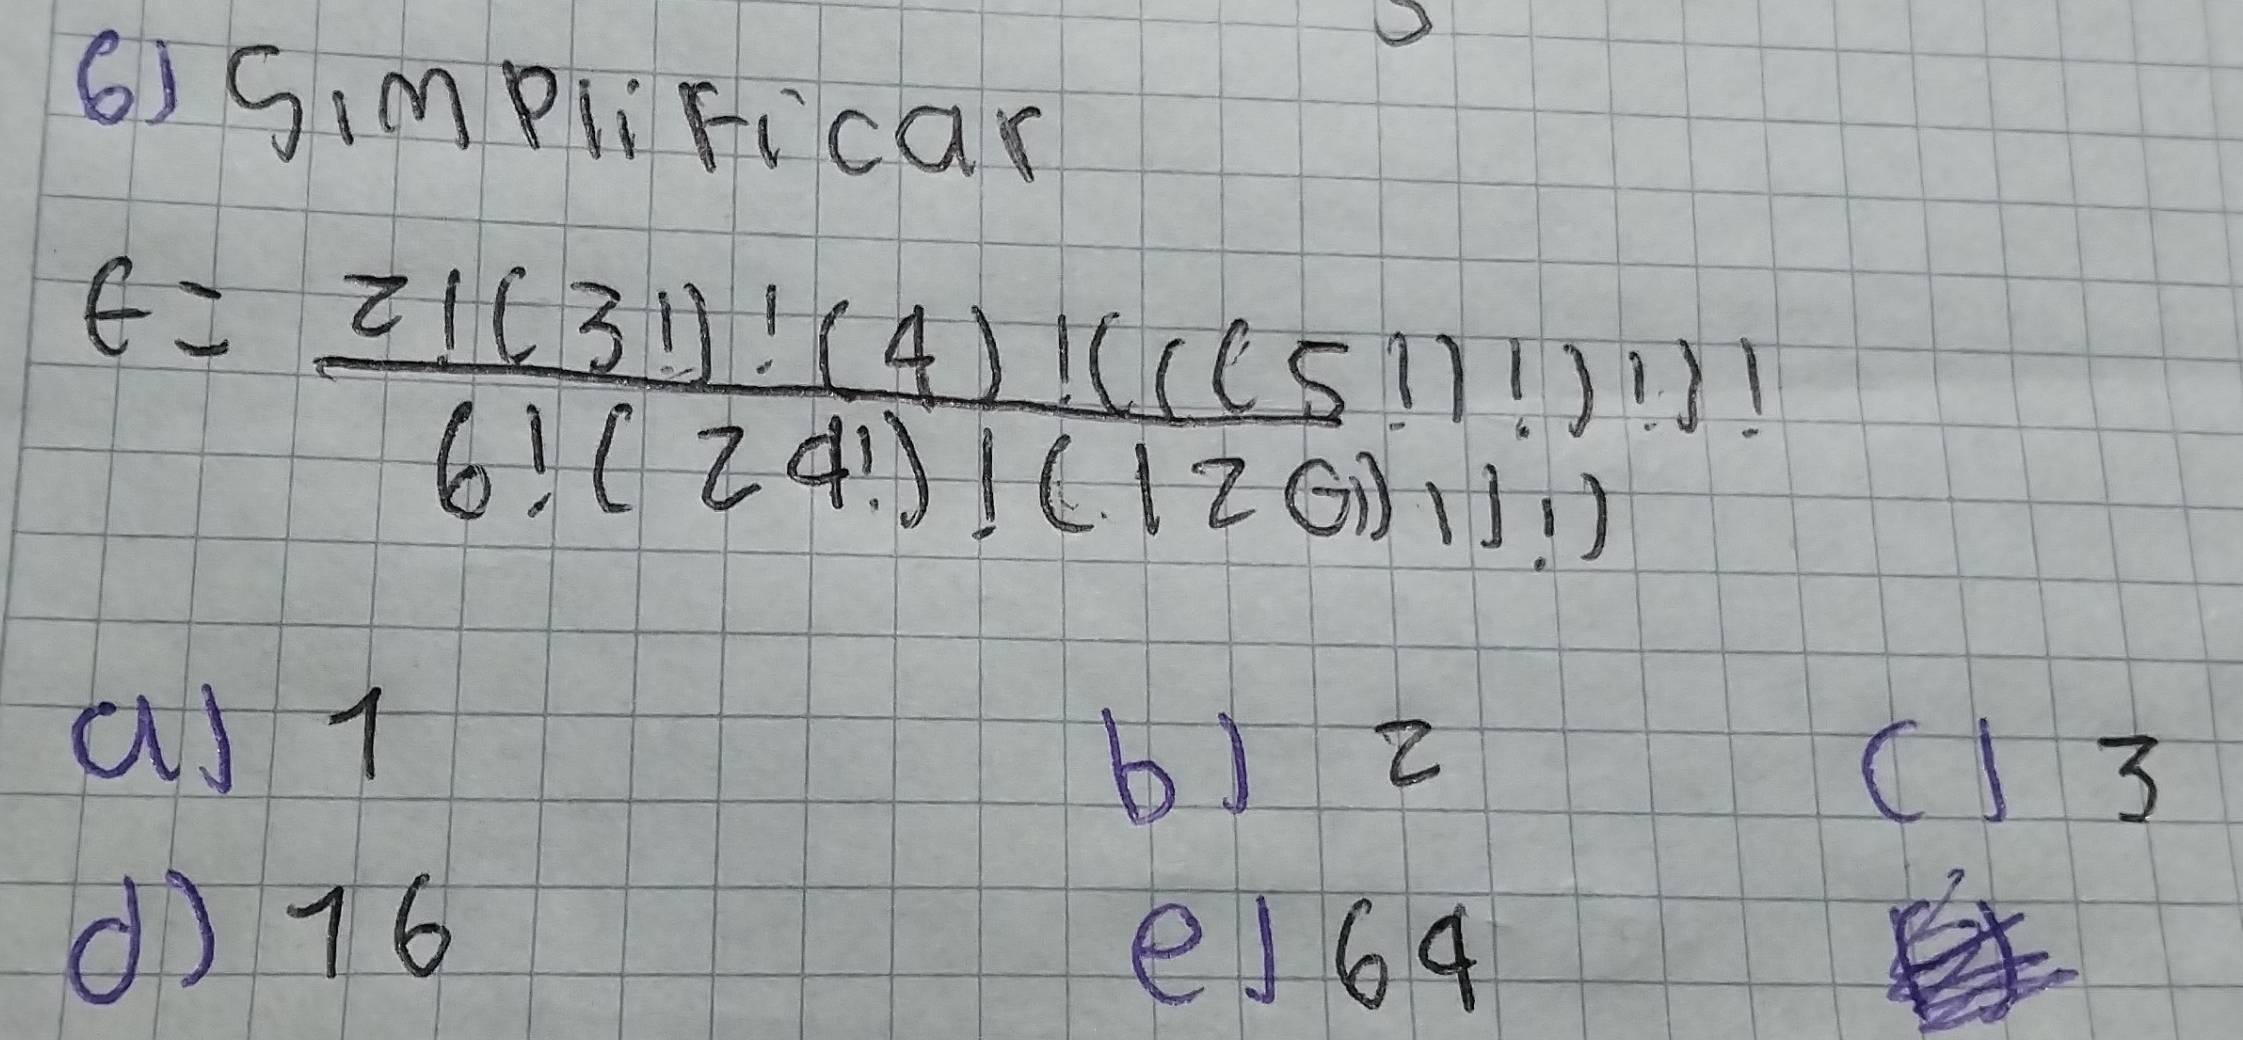 6) Simplificar
E = 2!(3!)!(4)!(((5!)!)!)!
6!(24!)!(120!)!)!)
a) 1 b) 2 c) 3
d) 16 e) 64